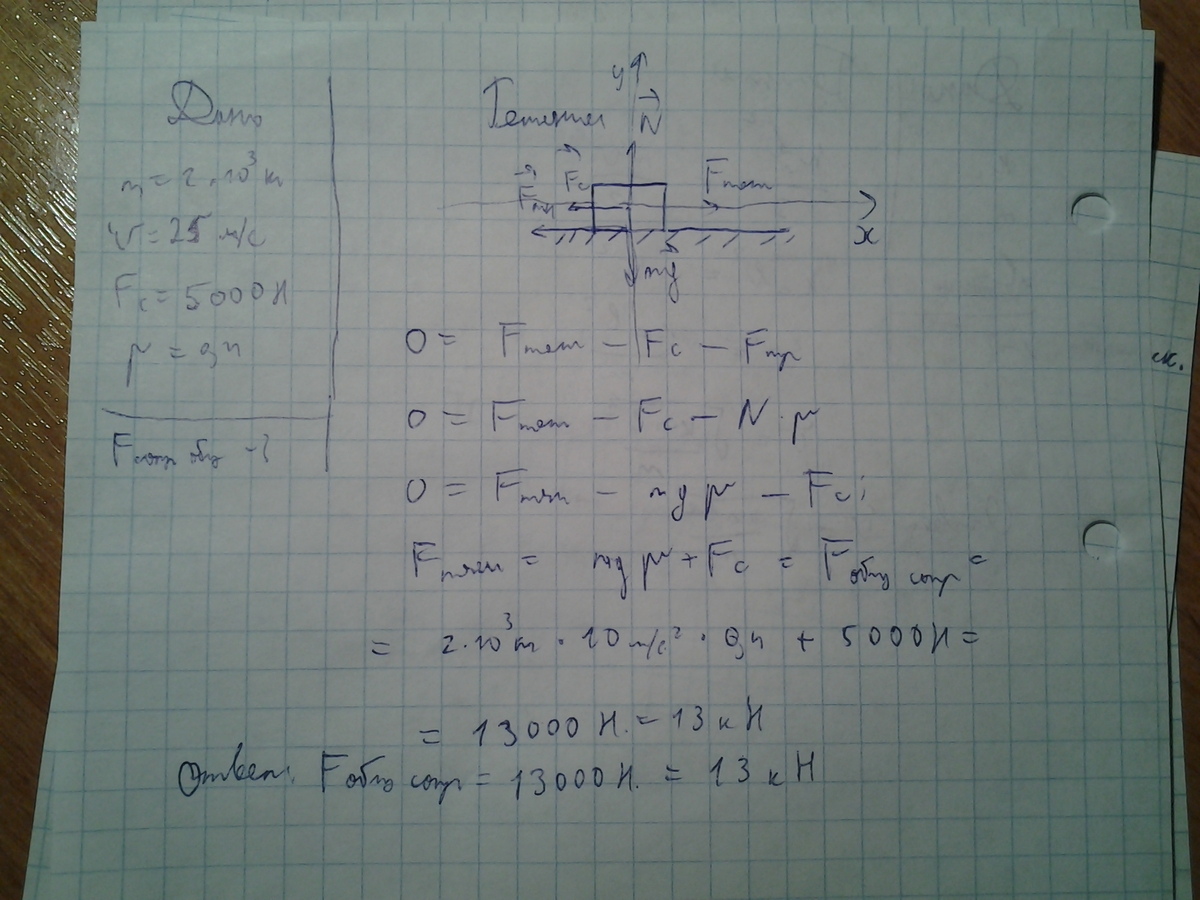 Дано
m = 2·10³ кг
V = 25 м/с
Fc = 5000 Н
μ = 0,4
Fсопр общ - ?
Решение
y
N
Fтр Fc Fтяг
x
mg
0 = Fтяг - Fc - Fтр
0 = Fтяг - Fc - N·μ
0 = Fтяг - mgμ - Fc;
Fтяги = mgμ + Fc = Fобщ сопр =
= 2·10³ кг · 10 м/с² · 0,4 + 5000 Н =
= 13000 Н. = 13 кН
Ответ: Fобщ сопр = 13000 Н. = 13 кН
ск.